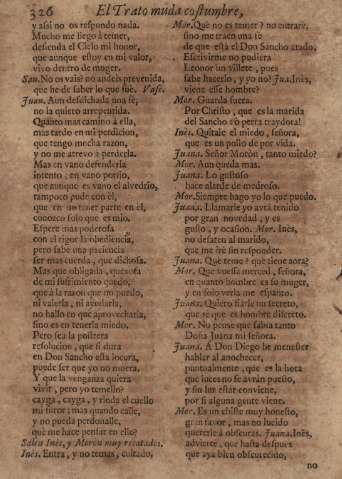 326 El Trato muda costumbre,
y assi no os respondo nada.
Mucho me llego à temer,
defienda el Cielo mi honor,
que aunque estoy en mi valor,
vivo dentro de muger.
San. No os vais? no andeis prevenida,
que he de saber lo que fue. Vase.
Juan. Aun desdichada una fè,
no la quiero arrepentida.
Quanto mas camino à ella,
mas tardo en mi perdicion,
que tengo mucha razon,
y no me atrevo à perderla.
Mas en vano defenderla
intento, en vano porfio,
que aunque es vano el alvedrio,
tampoco pude con èl,
que en no tener parte en èl,
conozco solo que es mio.
Esperè mas poderosa
con el rigor la obediencia,
pero sabe una paciencia
ser mas cuerda, que dichosa.
Mas que obligada, quexosa
de mi sufrimiento quedo,
que à la razon que no puedo,
ni valerla, ni ayudarla,
no hallo en que aprovecharla,
sino es en tenerla miedo.
Pero sea la postrera
resolucion, que si dura
en Don Sancho esta locura,
puede ser que yo no muera.
Y que la venganza quiera
vivir, pero yo temello?
cayga, cayga, y rinda el cuello
mi furor; mas quando calle,
y no pueda perdonalle,
què me hace pensar en ello?
Salen Inès, y Moron muy recatados.
Inès. Entra, y no temas, cuitado,
Mor. Què no es temer? no entrarè,
sino me traes una fè
de que està el Don Sancho atado.
Escrivirme no pudiera
Leonor un villete, pues
sabe hacerlo, y yo no? Jua. Inès,
viene esse hombre?
Mor. Guarda fuera.
Por Christo, que es la marida
del Sancho: ò perra traydora!
Inès. Quitale el miedo, señora,
que es un pollo de por vida.
Juana. Señor Moròn, tanto miedo?
Mor. Aun queda mas.
Juana. Lo gustoso
hace alarde de medroso.
Mor. Siempre hago yo lo que puedo.
Juana. Llamarle yo avrà tenido
por gran novedad, y es
gusto, y ocasion. Mor. Inès,
no desaten al marido,
que me irè sin responder.
Juana. Què teme? què tiene aora?
Mor. Que vuessa merced, señora,
en quanto hombre es su muger,
y en solo verla me espanto.
Juana. Quiero fiarle un secreto,
que sè que es hombre discreto.
Mor. No pense que sabia tanto
Doña Juana mi señora.
Juana. A Don Diego he menester
hablar al anochecer,
puntualmente, que es la hora
que luces no se avràn puesto,
y sin luz estàr conviene,
por si alguna gente viene.
Mor. Es un chiste muy honesto,
gran favor, mas no lucido
quererle à obscuras. Juana. Inès,
advierte, que hasta despues
que aya bien obscurecido,
no